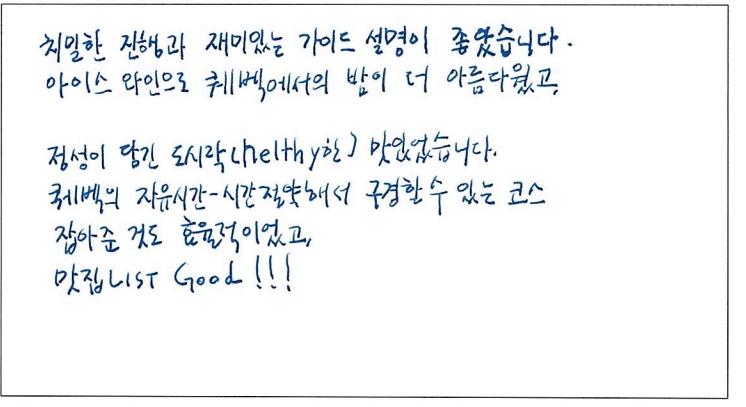 치밀한 진행과 재미있는 가이드 설명이 좋았습니다.
아이스 와인으로 퀘벡에서의 밤이 더 아름다웠고,
정성이 담긴 도시락(helthy한) 맛있었습니다.
퀘벡의 자유시간-시간절약해서 구경할 수 있는 코스
잡아준 것도 효율적이었고,
맛집LIST Good!!!